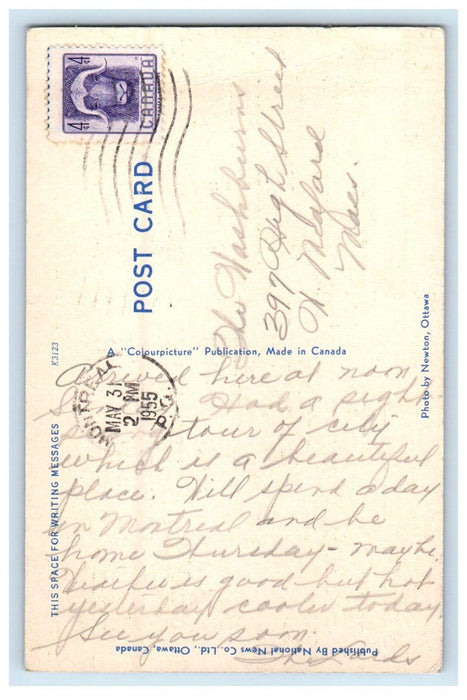 4¢ 4¢
CANADA
POST CARD
The Washburns
397 High Street
W. Medford
Mass.
A "Colourpicture" Publication, Made in Canada
K3123
MONTREAL
MAY 31
2 PM
1955
P.Q.
THIS SPACE FOR WRITING MESSAGES
Photo by Newton, Ottawa
Arrived here at noon
Had a sight
seeing tour of city
which is a beautiful
place. Will spend a day
in Montreal and be
home Thursday - maybe.
is good but hot
yesterday cooler today.
See you soon.
The
Published By National News Co. Ltd., Ottawa, Canada